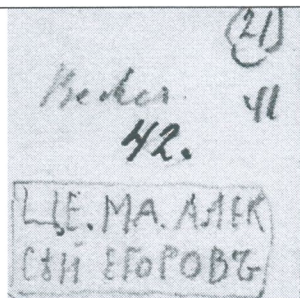 21
Becker. 41
42.
ЦЕ. МА. АЛЕК
СѢЙ ЕГОРОВЪ